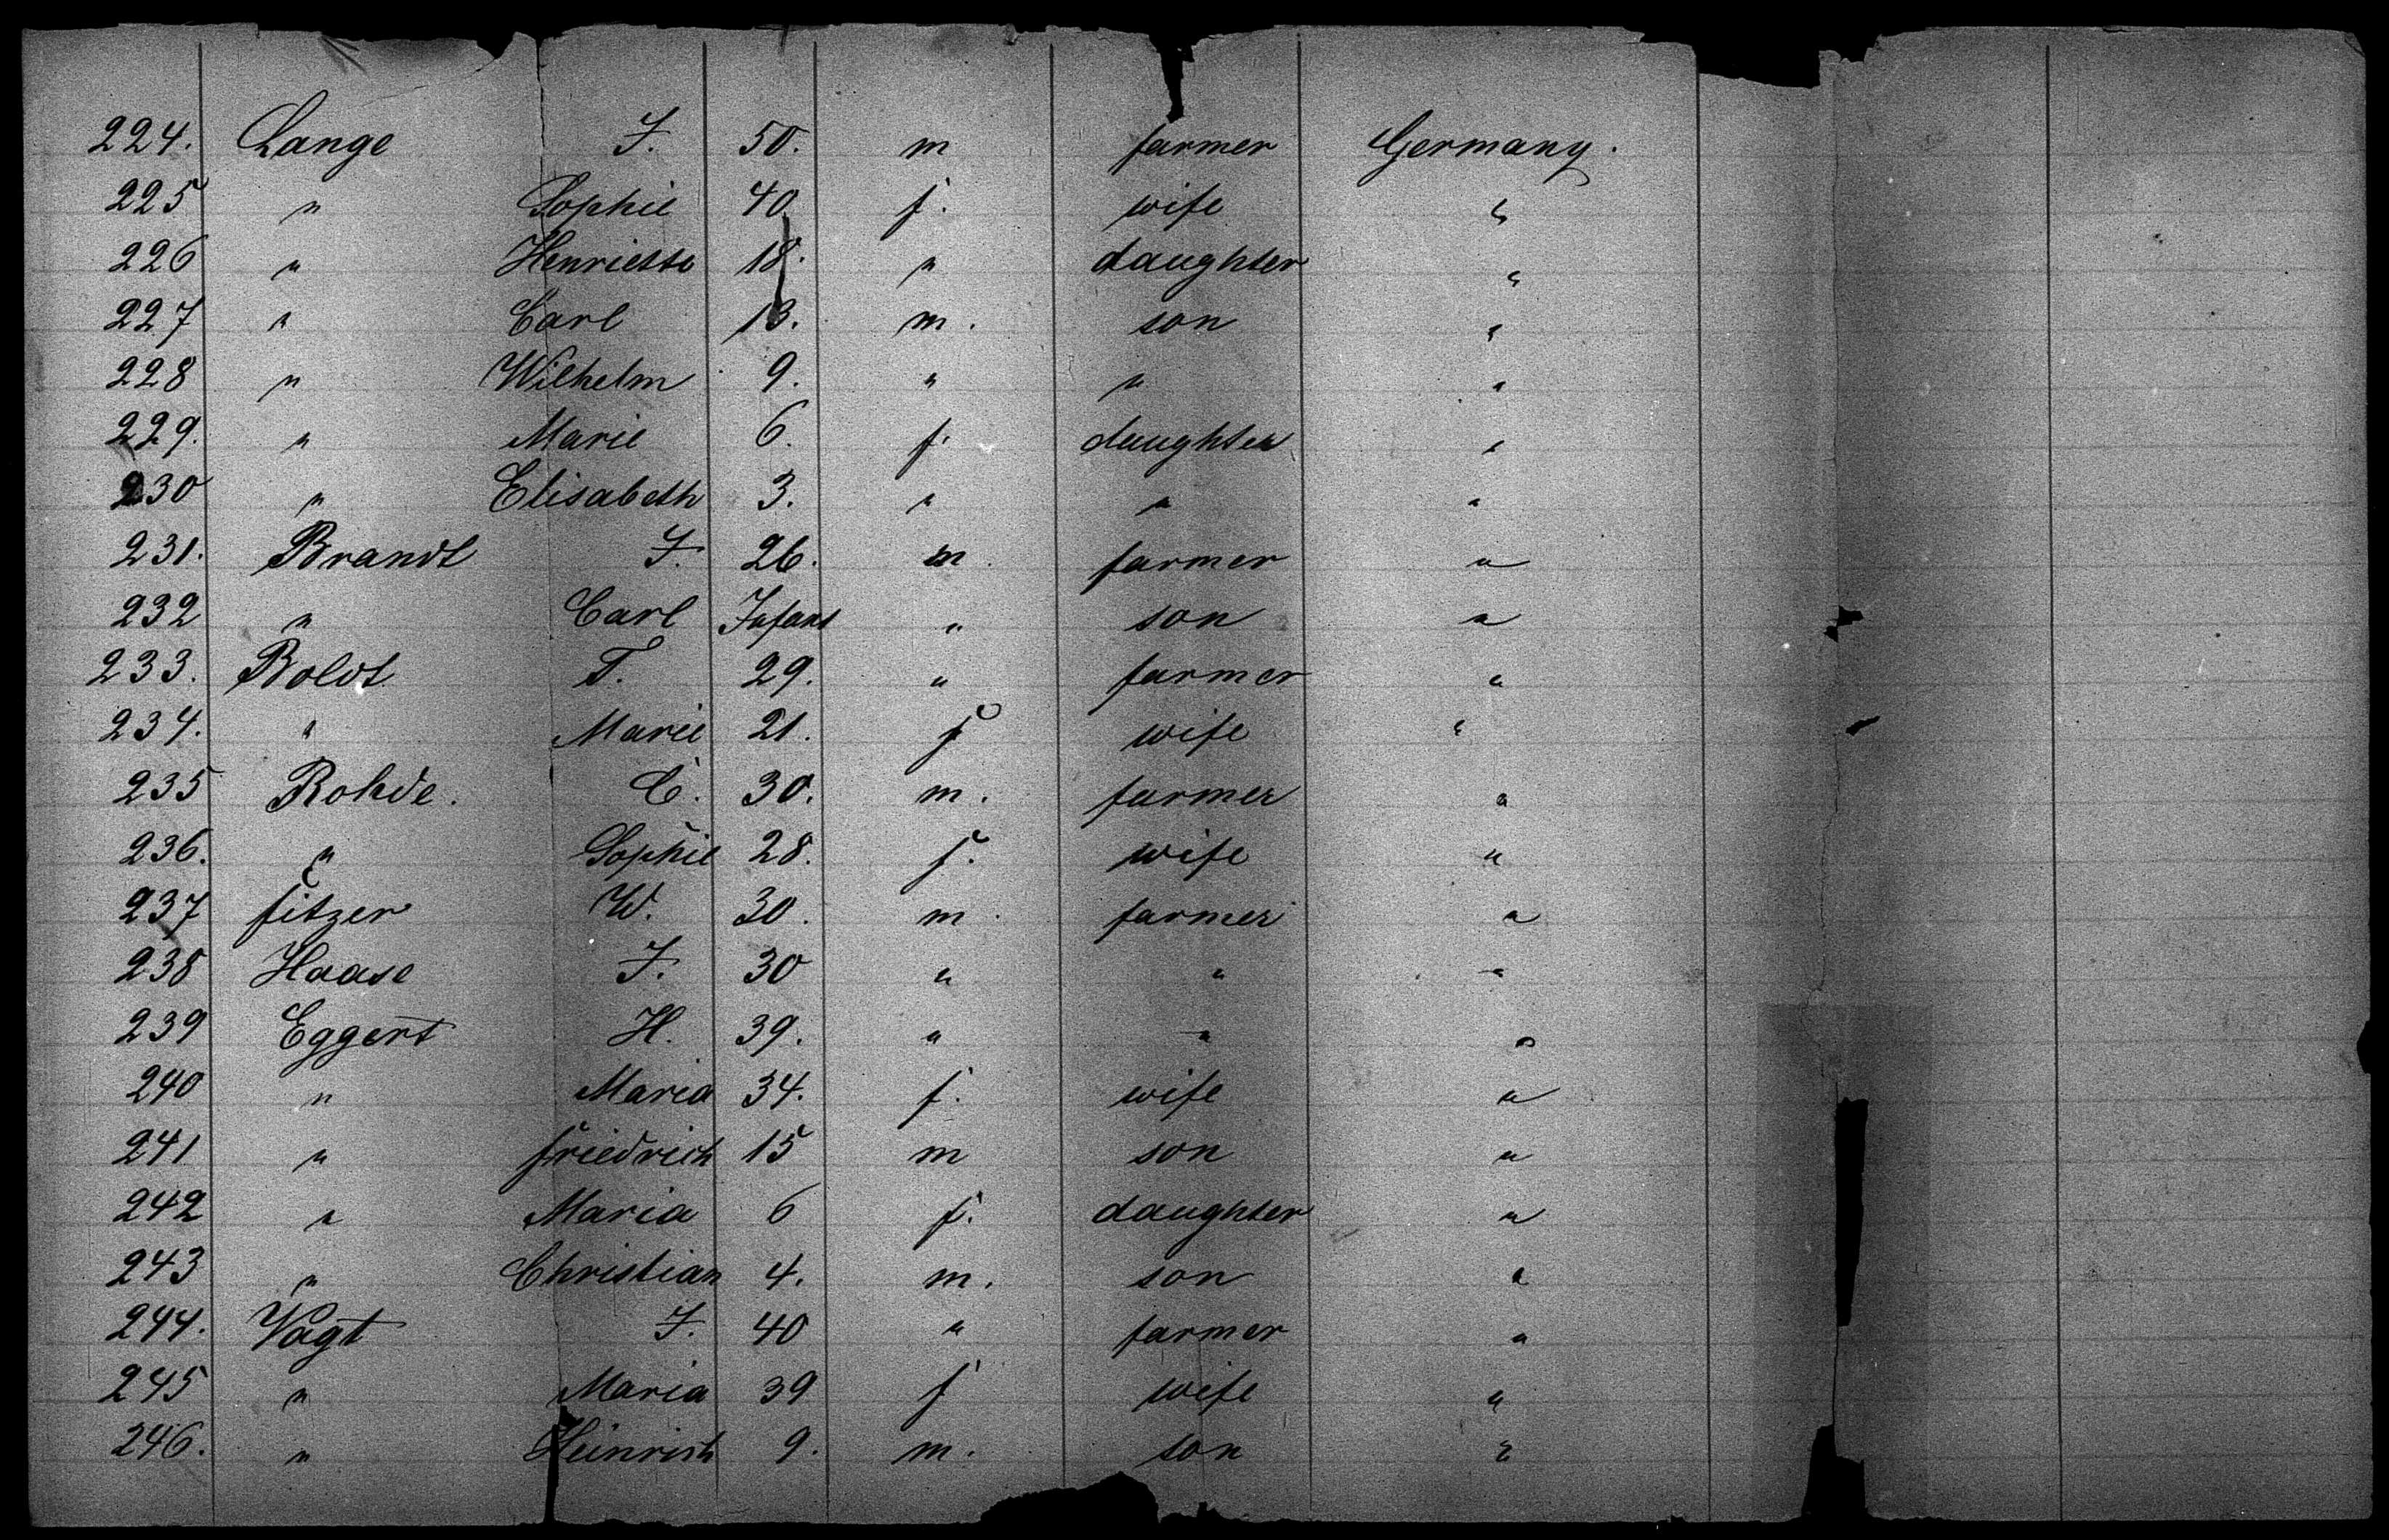 224. Lange J. 50. m farmer Germany.
225 " Sophie 40 f. wife "
226 " Henriette 18. " daughter "
227 " Carl 13. m. son "
228 " Wilhelm 9. " " "
229. " Marie 6. f. daughter "
230 " Elisabeth 3. " " "
231. Brandt J. 26. m. farmer "
232 " Carl Infant " son "
233. Boldt T. 29. " farmer "
234. " Marie 21. f wife "
235 Rohde. C. 30. m. farmer "
236. " Sophie 28. f. wife "
237 fitzer W. 30. m. farmer "
238 Haase J. 30 " " "
239 Eggert H. 39. " " "
240 " Maria 34. f. wife "
241 " friedrich 15 m son "
242 " Maria 6 f. daughter "
243 " Christian 4. m. son "
244. Vogt J. 40 " farmer "
245 " Maria 39 f wife "
246. " Heinrich 9. m. son "